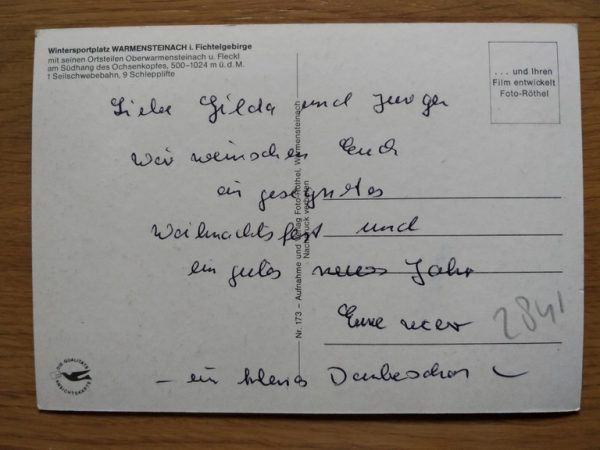 Wintersportplatz WARMENSTEINACH i. Fichtelgebirge
mit seinen Ortsteilen Oberwarmensteinach u. Fleckl
am Südhang des Ochsenkopfes, 500–1024 m ü. d. M.
1 Seilschwebebahn, 9 Schlepplifte
. . . und Ihren
Film entwickelt
Foto-Röthel
Liebe Gilda und Juergen
Wir wünschen Euch
ein gesegnetes
Weihnachtsfest und
ein gutes neues Jahr
Eure
2841
– ein Dankeschön
Nr. 173 – Aufnahme und Verlag Foto-Röthel, Warmensteinach
Nachdruck verboten
DIE QUALITÄTS
ANSICHTSKARTE